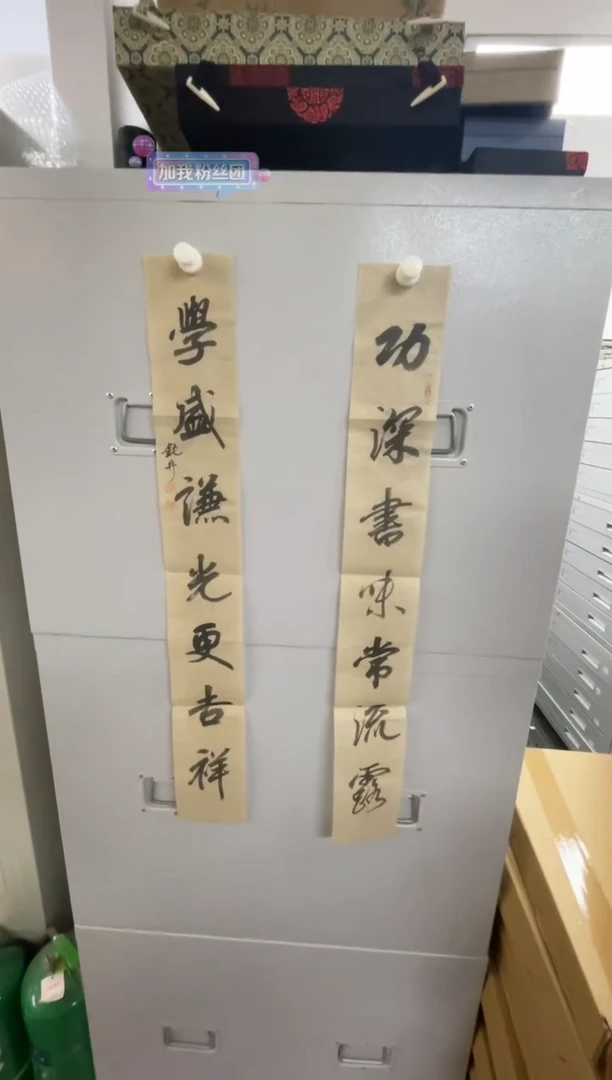 加我粉丝团
功深書味常流露
學盛謙光更吉祥